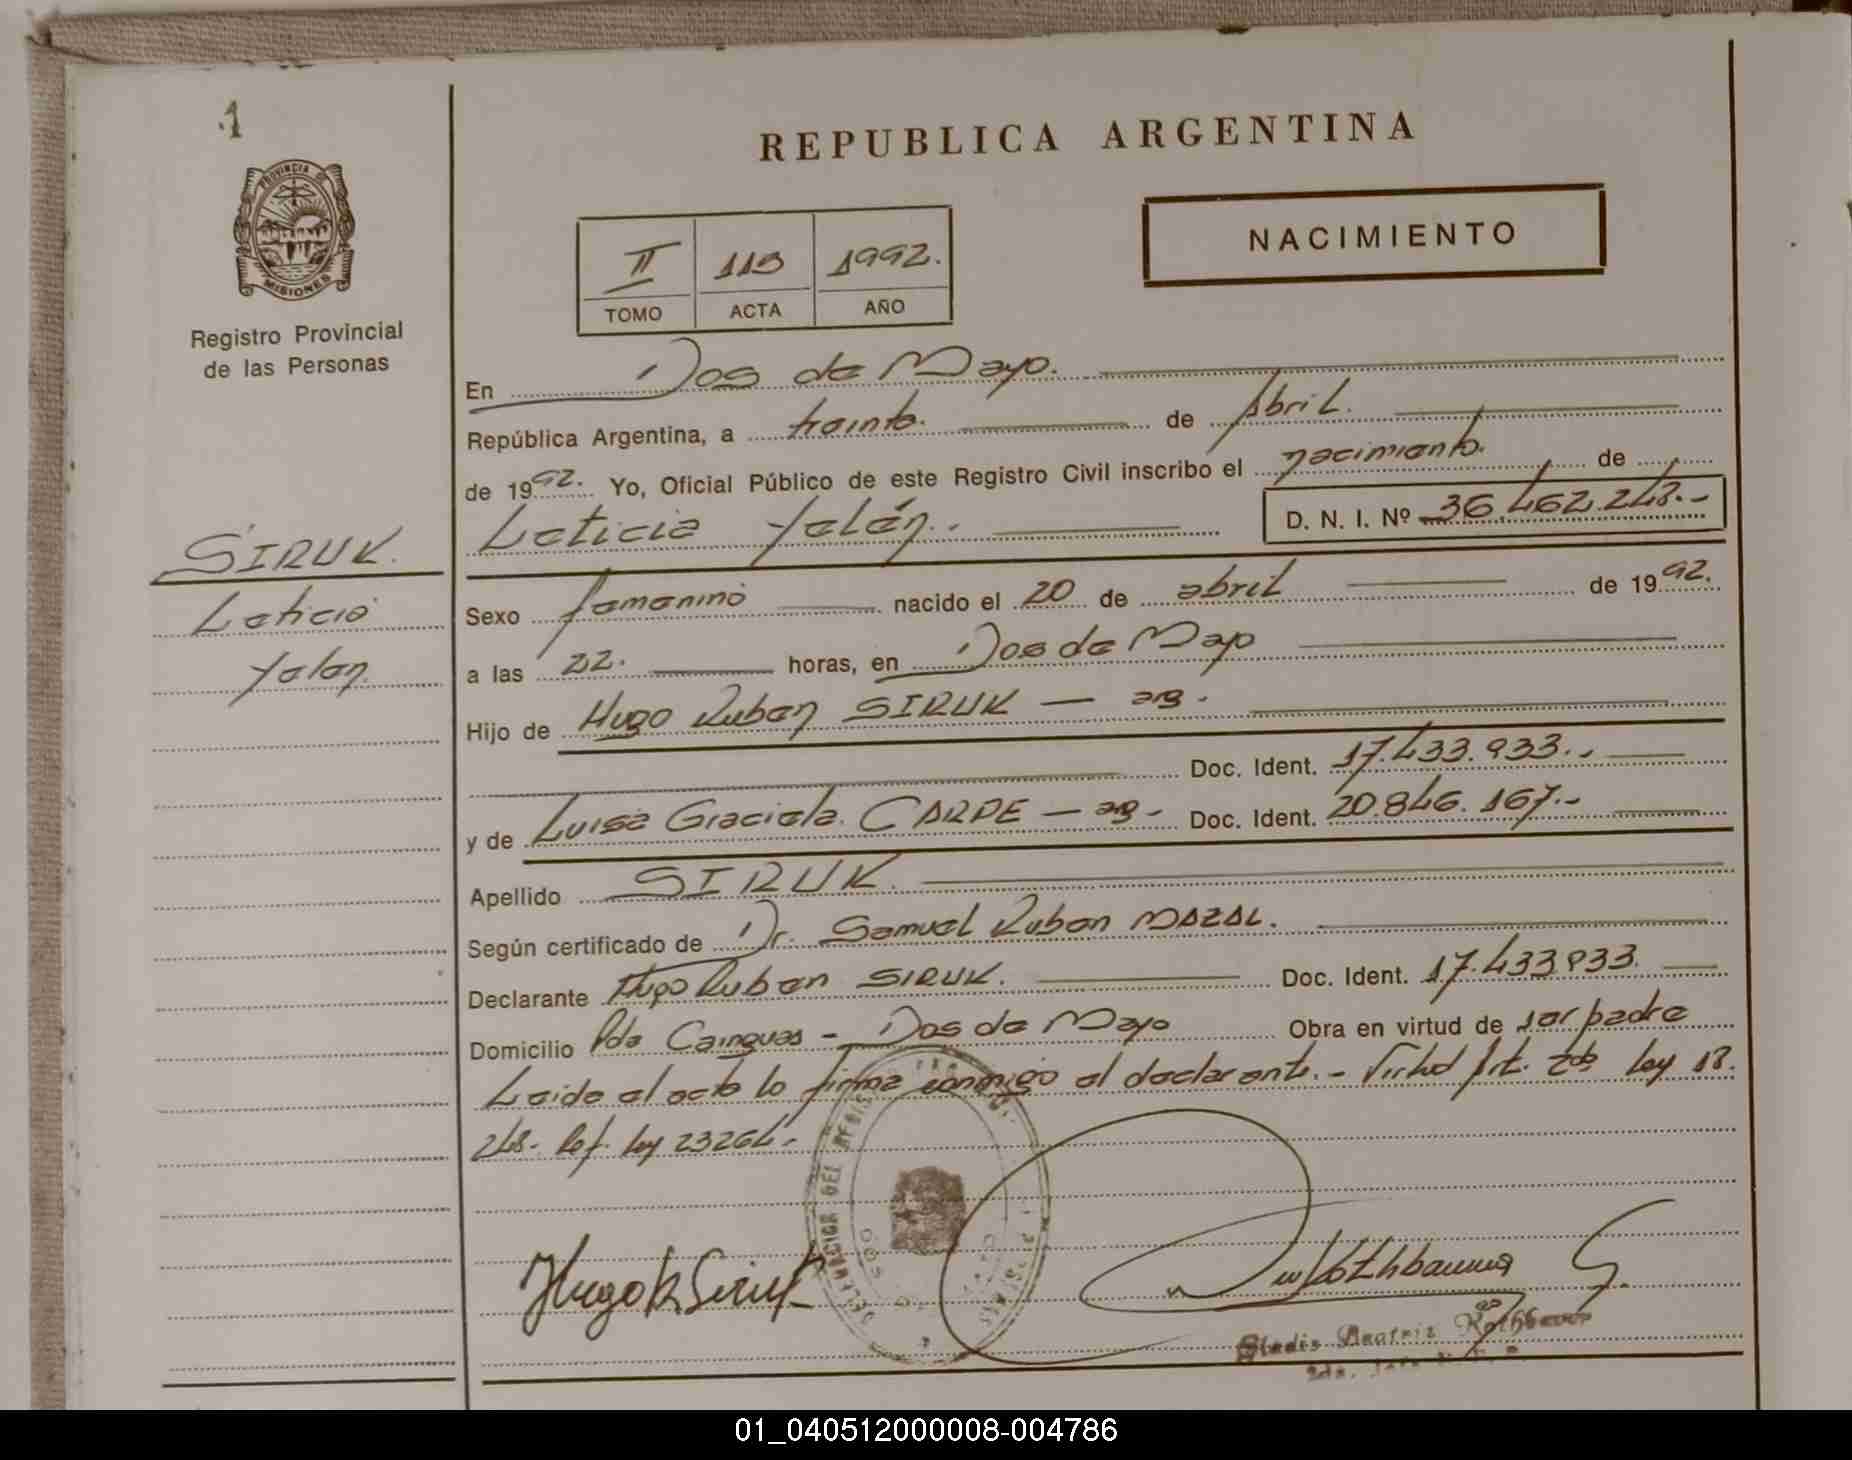 1
PROVINCIA DE
MISIONES
Registro Provincial
de las Personas
SIRUK.
Leticia
Yalen
REPUBLICA ARGENTINA
NACIMIENTO
II 113 1992.
TOMO ACTA AÑO
En Dos de Mayo.
República Argentina, a treinta. de Abril.
de 1992. Yo, Oficial Público de este Registro Civil inscribo el nacimiento. de
Leticia Yalén. D. N. I. Nº 36.462.248.-
Sexo femenino nacido el 20 de abril de 1992.
a las 22. horas, en Dos de Mayo
Hijo de Hugo Ruben SIRUK — arg.
Doc. Ident. 17.433.933.-
y de Luisa Graciela CARPE — arg- Doc. Ident. 20.846.167.-
Apellido SIRUK.
Según certificado de Dr. Samuel Ruben MAZAL.
Declarante Hugo Ruben SIRUK. Doc. Ident. 17.433.933.
Domicilio Pda Cainguas - Dos de Mayo Obra en virtud de ser padre
Leida el acta la firma conmigo el declarante.- Virtud Art. 2do ley 18.
248. Ref. ley 23264.-
DELEGACION DEL REGISTRO
DOS DE
Hugo R Siruk
Rothbauer
Gladis Beatriz Rothbauer
01_040512000008-004786